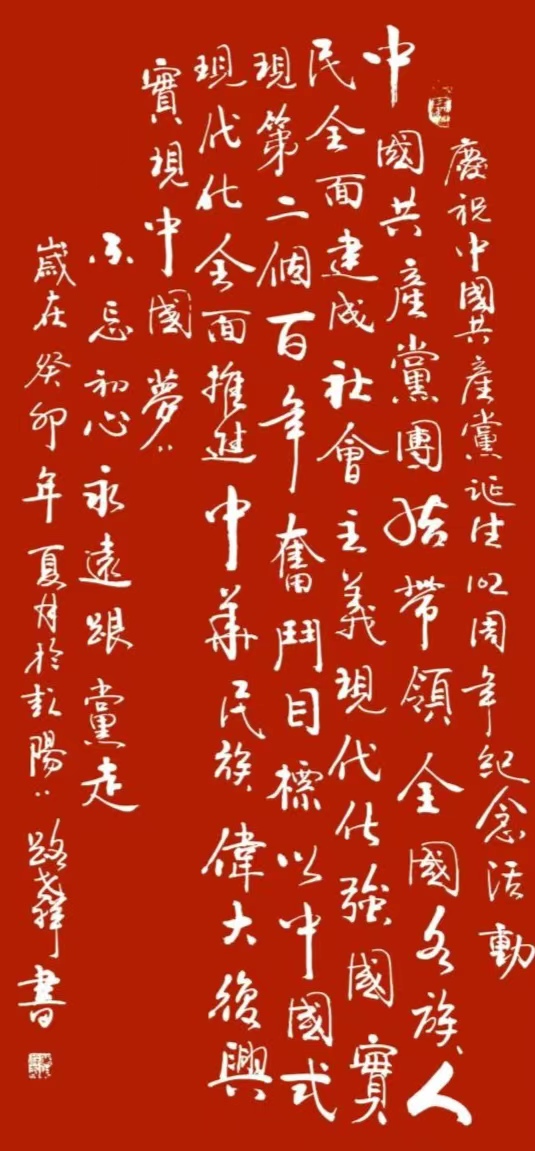 慶祝中國共產黨誕生102周年纪念活動
中國共產黨團结帶領全國各族人
民全面建成社會主義現代化強國實
現第二個百年奮鬥目標以中國式
現代化全面推进中華民族偉大復興
實現中國夢
不忘初心永遠跟黨走
歲在癸卯年夏月於彭陽
書